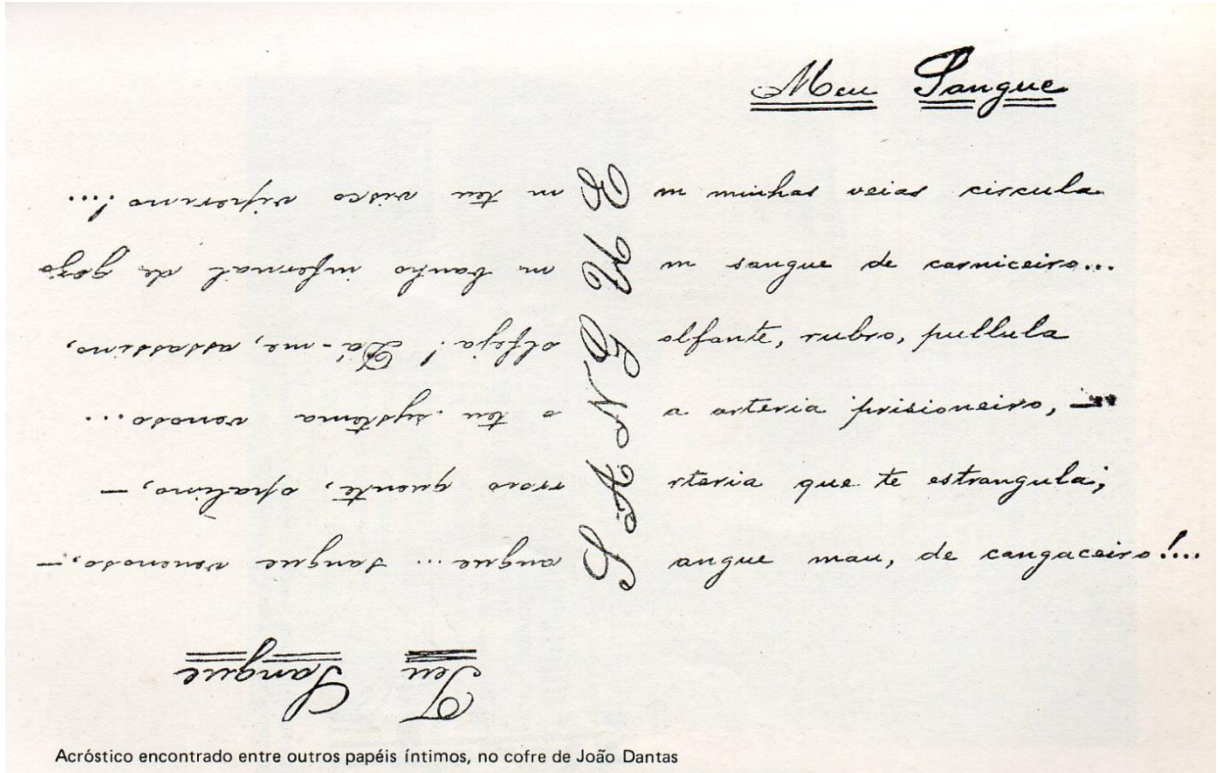 Meu Sangue
Em minhas veias circula
Um sangue de carniceiro...
Golfante, rubro, pullula
Na arteria prisioneiro, —
Arteria que te estrangula;
Sangue mau, de cangaceiro!...
Teu Sangue
Sangue... sangue venenoso, —
Arroio quente, opalino, —
No teu systema venoso...
Golfeja! Dá-me, assassino,
Um banho infernal de gozo
Em teu visco viperino!...
Acróstico encontrado entre outros papéis íntimos, no cofre de João Dantas